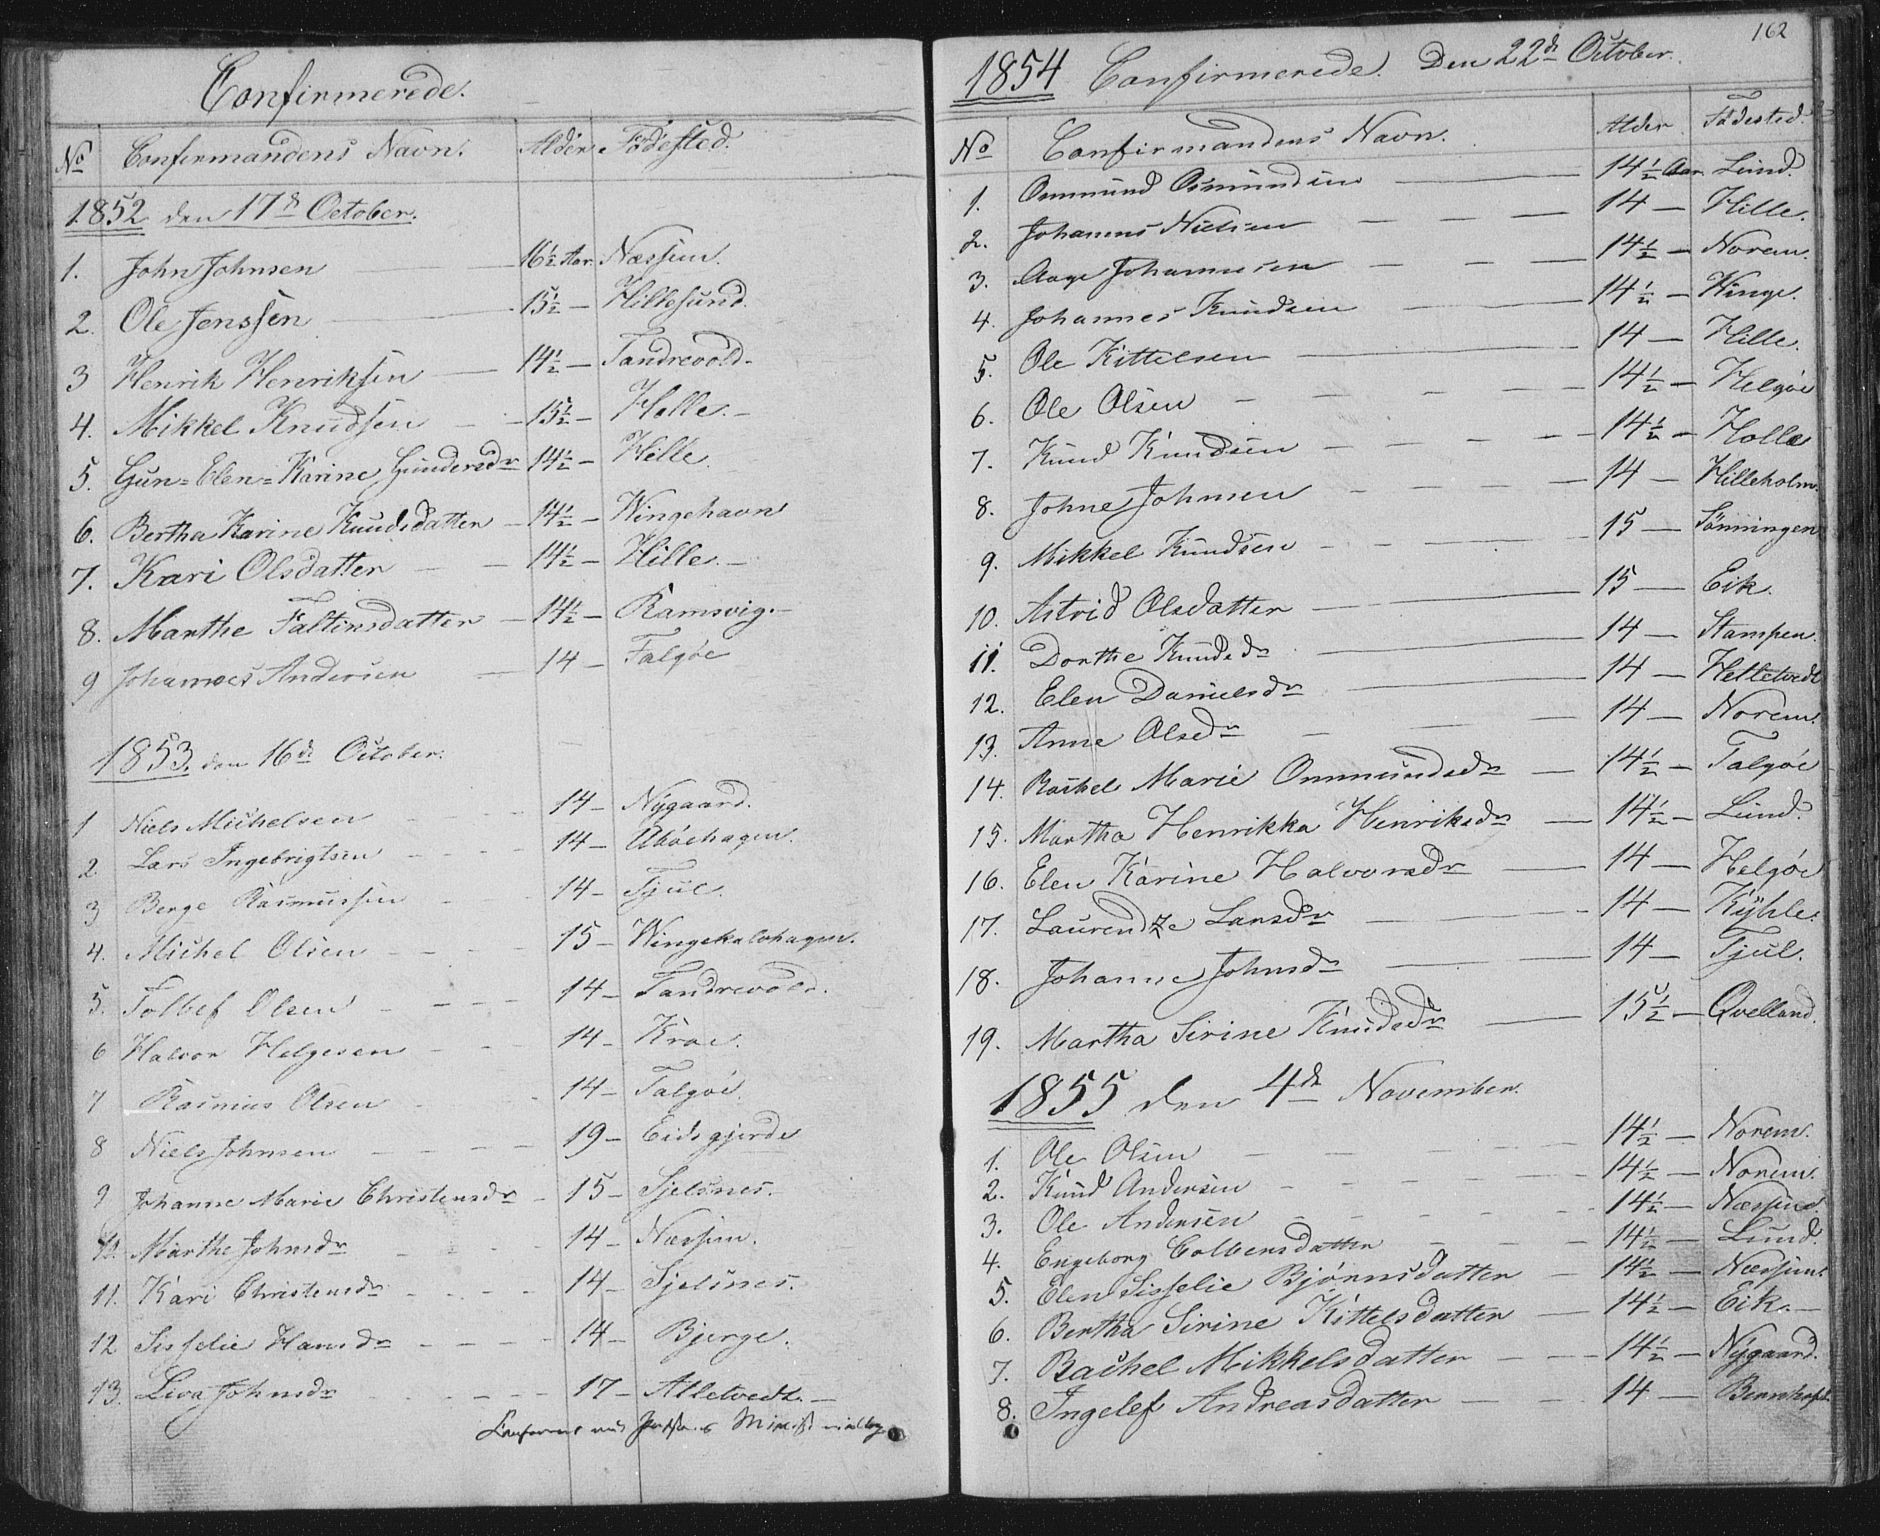 Confirmerede.
No Confirmandens Navn. Alder. Födested.
1852 den 17de October.
1. John Johnsen 16½ Aar. Næssem.
2. Ole Jenssen 15½ — Hillesund.
3 Henrik Henriksen — 14½ — Tandrevold.
4. Mikkel Knudsen - 15½ — Helle. -
5. Gun-Elen-Karine Gundersdr 14½ — Hille.
6. Bertha Karine Knudsdatter - 14½ — Wingehavn
7. Kari Olsdatter - - 14½ — Hille. -
8. Marthe Faltinsdatter - 14½ — Ramsvig. -
9 Johannes Andersen — 14 - Talgöe
1853. den 16de October.
1 Niels Michelsen - - - 14 - Nygaard.
2. Lars Ingebrigtsen - - - 14 - Aböehagen.
3 Berge Rasmussen - - - 14 - Tjul.
4. Michel Olsen - - - 15 - Wingekalvhagen.
5. Tolbef Olsen - - - 14 - Tandrevold.
6 Halvor Helgesen - - - 14 - Kroe.
7 Rasmus Olsen - - - 14 - Talgöe.
8 Niels Johnsen - - - 19 - Eidsgjerde
9 Johanne Marie Christensdr - 15 - Sjelsnes.
10. Marthe Johnsdr - - - 14 - Næssem.
11. Kari Christensdr - - - 14 - Sjelsnes.
12 Sisselie Hansdr - - - 14 - Bjerge.
13. Siva Johnsdr - - - 17 - Atletvedt. -
162
1854 Confirmerede. Den 22de October.
No Confirmandens Navn. Alder. Födested.
1. Ommund Osmundsen — 14½ Aar. Lund.
2. Johannes Nielsen - - - 14 — Hille.
3. Aage Johannesen - - - 14½ — Norem.
4. Johannes Knudsen — 14½ — Winge.
5. Ole Kittelsen — 14 — Hille.
6. Ole Olsen - - - 14½ — Helgöe
7. Knud Knudsen - - - 14½ — Holle
8. Johne Johnsen - - - 14 — Hilleholm.
9. Mikkel Knudsen - - - 15 — Sönningen
10. Astrid Olsdatter — 15 — Eik.
11. Dorthe Knudsdr — 14 — Stampen.
12. Elen Danielsdr — 14 — Hettetvedt
13. Anne Olsdr - - - 14 — Norem.
14. Rachel Marie Ommundsdr — 14½ — Talgöe
15. Martha Henrikka Henriksdr — 14½ — Lund.
16. Elen Karine Halvorsdr — 14 — Helgöe
17. Laurendze Larsdr - - - 14 — Kÿhle.
18. Johanne Johnsdr — 14 — Tjul.
19. Martha Sirine Knudsdr — 15½ — Qvelland.
1855 den 4de November.
1. Ole Olsen - - - 14½ — Norem.
2. Knud Andersen - - - 14½ — Norem.
3. Ole Andersen - - - 14½ — Næssem.
4. Engeborg Colbensdatter - - - 14½ — Lund.
5. Elen Sisselie Bjørnsdatter — 14½ — Næssem.
6. Bertha Sirine Kittelsdatter — 14½ — Eik. —
7. Rachel Mikkelsdatter — 14½ — Nÿgaard.
8. Ingelef Andreasdatter — 14 —